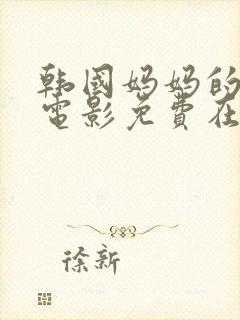 韩国妈妈的
電影免費在
徐新